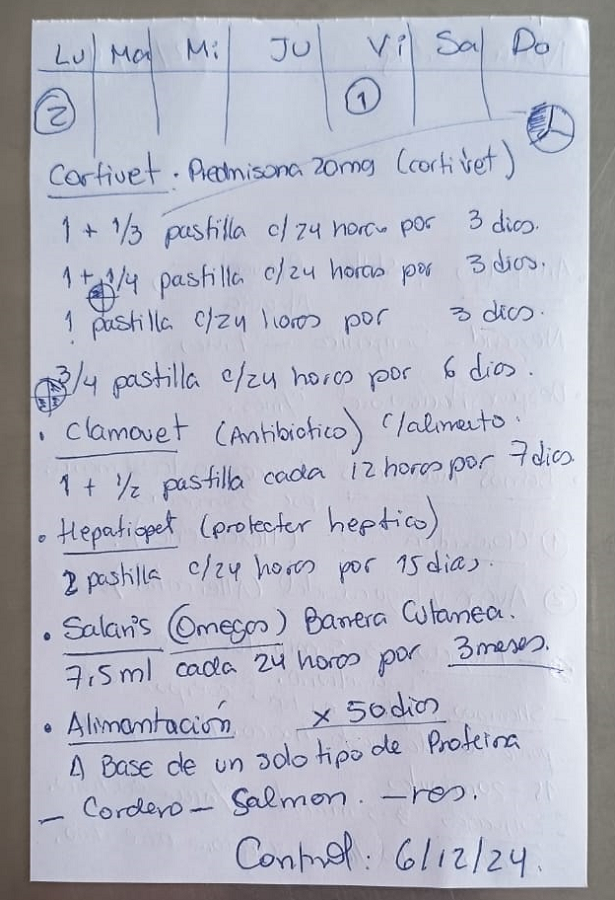 Lu Ma Mi Ju Vi Sa Do
2 1
Cortivet . Prednisona 20mg (cortivet)
1 + 1/3 pastilla c/24 horas por 3 dias.
1 + 1/4 pastilla c/24 horas por 3 dias.
1 pastilla c/24 horas por 3 dias.
3/4 pastilla c/24 horas por 6 dias.
• Clamovet (Antibiotico) c/alimento.
1 + 1/2 pastilla cada 12 horas por 7 dias
• Hepatiopet (protecter heptico)
2 pastilla c/24 horas por 15 dias.
• Salari's (Omegas) Barrera Cutanea.
7,5ml cada 24 horas por 3 meses.
• Alimentación x 50 dias
A Base de un solo tipo de Proteina
- Cordero - Salmon. - res.
Control: 6/12/24.